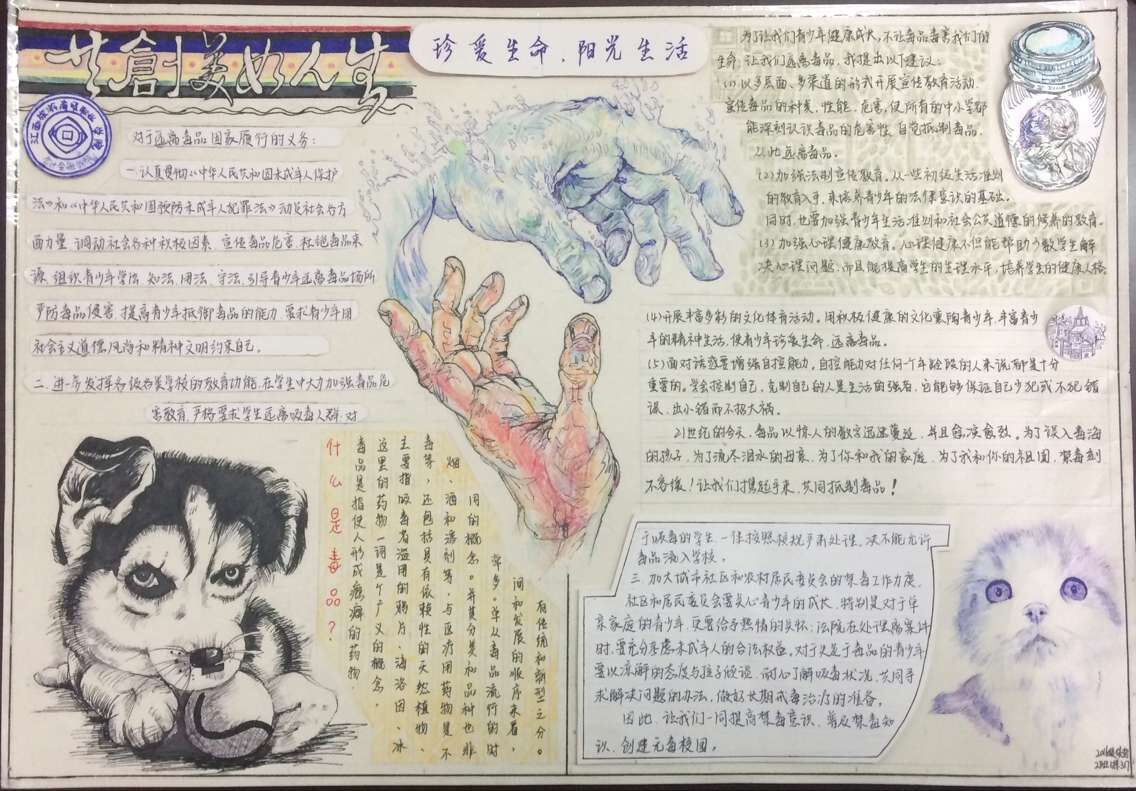 共創美好人生
珍爱生命、阳光生活
对于远离毒品国家履行的义务：
一.认真贯彻《中华人民共和国未成年人保护
法》和《中华人民共和国预防未成年人犯罪法》动员社会各方
面力量，调动社会各种积极因素，宣传毒品危害，杜绝毒品来
源，组织青少年学法、知法、用法、守法，引导青少年远离毒品场所
严防毒品侵害，提高青少年抵御毒品的能力，要求青少年用
社会主义道德风尚和精神文明约束自己。
二.进一步发挥各级各类学校的教育功能，在学生中大力加强毒品危
害教育，严格要求学生远离吸毒人群，对
于吸毒的学生，一律按照校规严肃处理，决不能允许
毒品流入学校。
三.加大城市社区和农村居民委员会的禁毒工作力度。
社区和居民委员会要关心青少年的成长，特别是对于单
亲家庭的青少年，更要给予热情的关怀；法院在处理离案件
时，要充分考虑未成年人的合法权益。对于失足于毒品的青少年
要以谅解的态度与孩子倾谈，耐心了解吸毒状况，共同寻
求解决问题的办法，做好长期戒毒治疗的准备。
因此，让我们一同提高禁毒意识，普及禁毒知
识、创建无毒校园。
为了让我们青少年健康成长，不让毒品毒害我们的
生命，让我们远离毒品，我提出以下建议：
(1)以多层面、多渠道的形式开展宣传教育活动
宣传毒品的种类、性能、危害，使所有的中小学都
能深刻认识毒品的危害性，自觉抵制毒品，
以此远离毒品。
(2)加强法制宣传教育。从一些初级生活准则
的教育入手，来培养青少年的法律意识的基础。
同时，也要加强青少年生活准则和社会公共道德的修养的教育。
(3)加强心理健康教育。心理健康不但能帮助少数学生解
决心理问题，而且能提高学生的生理水平，培养学生的健康人格
(4)开展丰富多彩的文化体育活动。用积极健康的文化熏陶青少年，丰富青少
年的精神生活，使青少年珍爱生命，远离毒品。
(5)面对诱惑要增强自控能力。自控能力对任何一个年龄段的人来说都是十分
重要的。学会控制自己，克制自己的人是生活的强者，它能够保证自己少犯或不犯错
误，出小错而不招大祸。
21世纪的今天，毒品以惊人的数字迅速蔓延，并且愈演愈烈。为了误入毒海
的孩子，为了流尽泪水的母亲，为了你和我的家庭，为了我和你的祖国，禁毒刻
不容缓！让我们携起手来，共同抵制毒品！
什么是毒品？
毒品是指使人形成瘾癖的药物，
这里的药物一词是个广义的概念，
主要指吸毒者滥用的鸦片、海洛因、冰
毒等，还包括具有依赖性的天然植物、
烟、酒和溶剂等，与医疗用药物是不
同的概念。并其分类和品种也非
常多。单从毒品流行的时
间和发展的顺序来看，
有传统和新型之分。